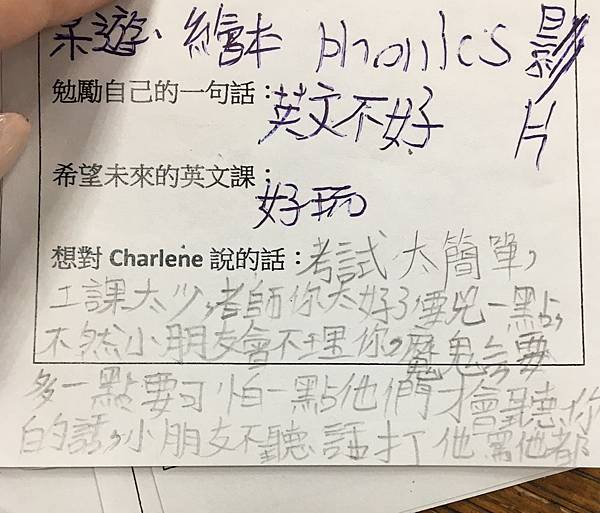 桌遊、繪本 phonics 影
勉勵自己的一句話：英文不好 H
希望未來的英文課：好玩
想對 Charlene 說的話：考試太簡單，
工課太少，老師你太好了要兇一點，
不然小朋友會不理你，魔鬼要
多一點要可怕一點他們才會聽你
的話，小朋友不聽話打他罵他都